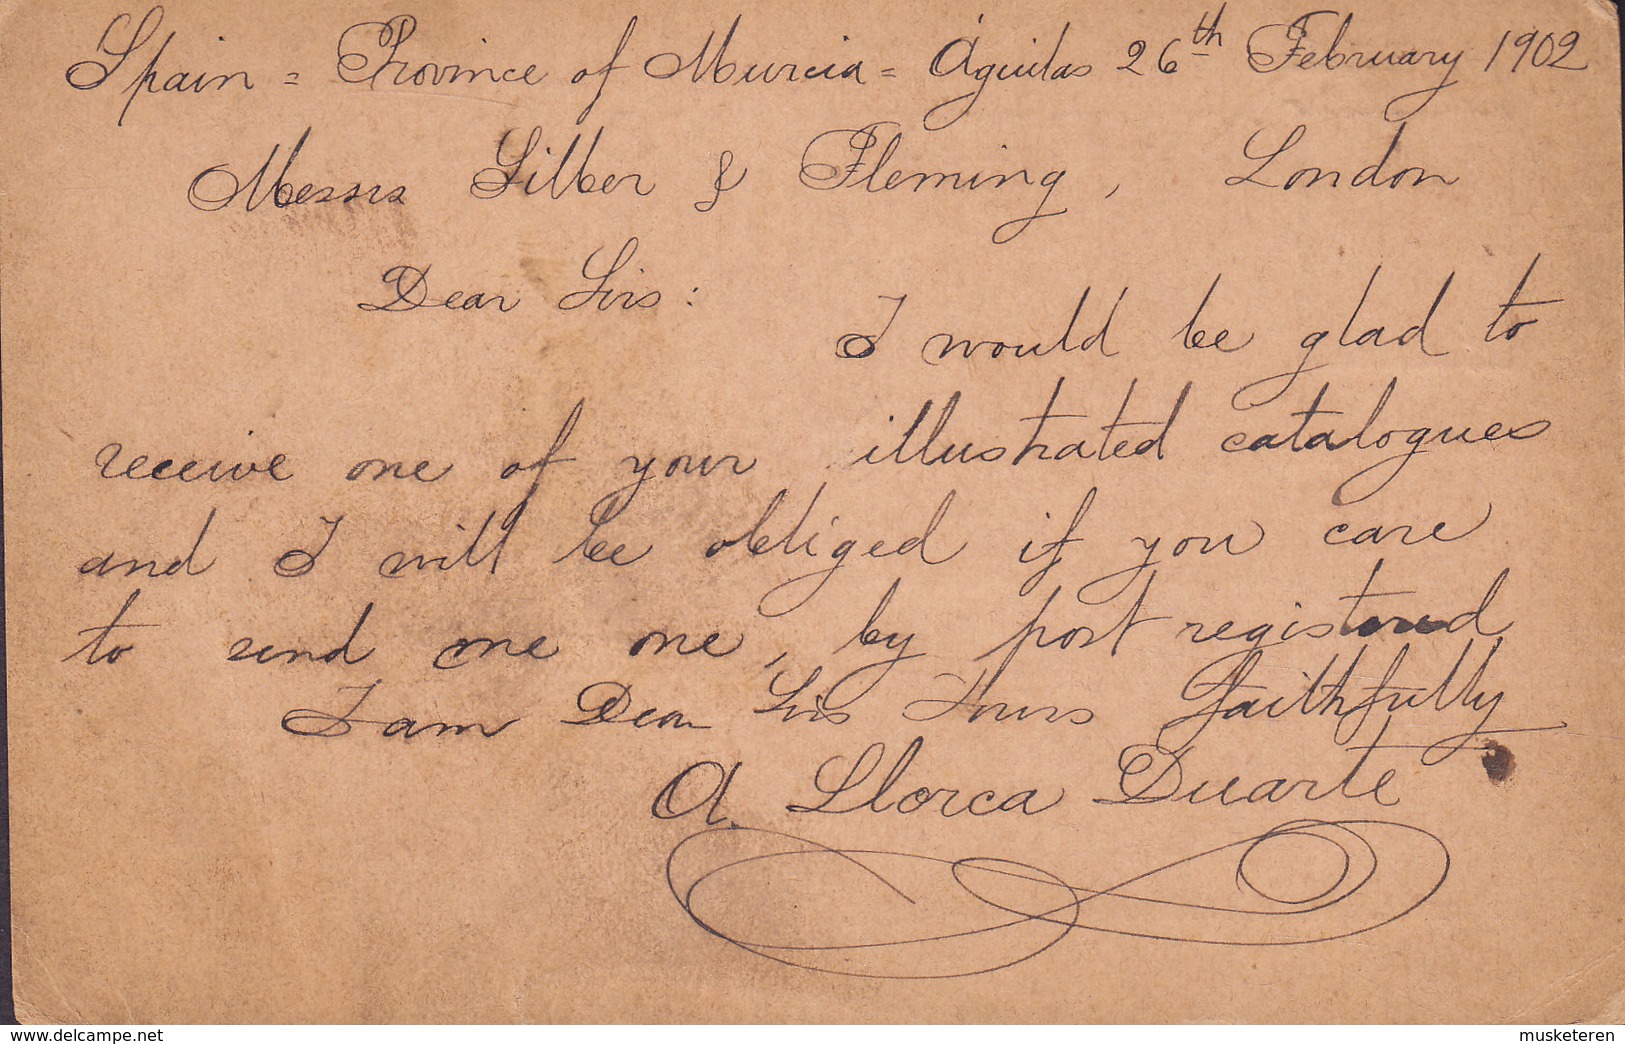 Spain = Province of Murcia = Águilas 26th February 1902
Messrs Silber & Fleming, London
Dear Sirs:
I would be glad to
receive one of your illustrated catalogues
and I will be obliged if you care
to send me one, by post registered
I am Dear Sirs Yours faithfully
A. Llorca Duarte
www.delcampe.net
musketeren